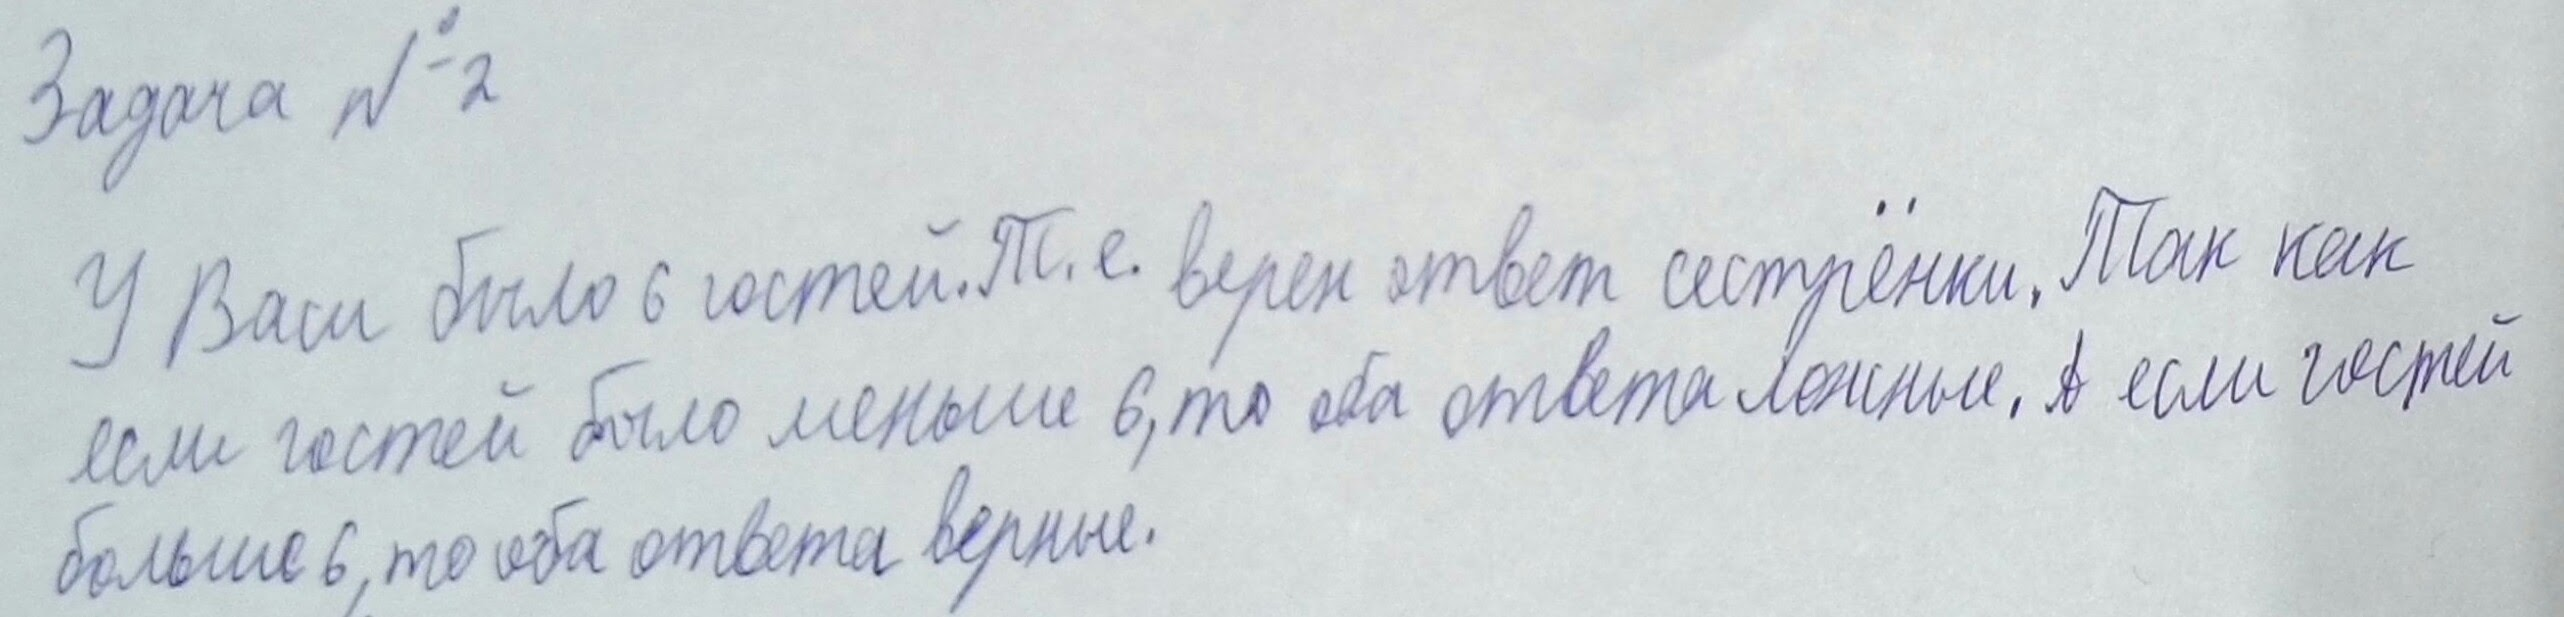 Задача №2
У Васи было 6 гостей. Т. е. верен ответ сестрёнки. Так как
если гостей было меньше 6, то оба ответа ложные. А если гостей
больше 6, то оба ответа верные.